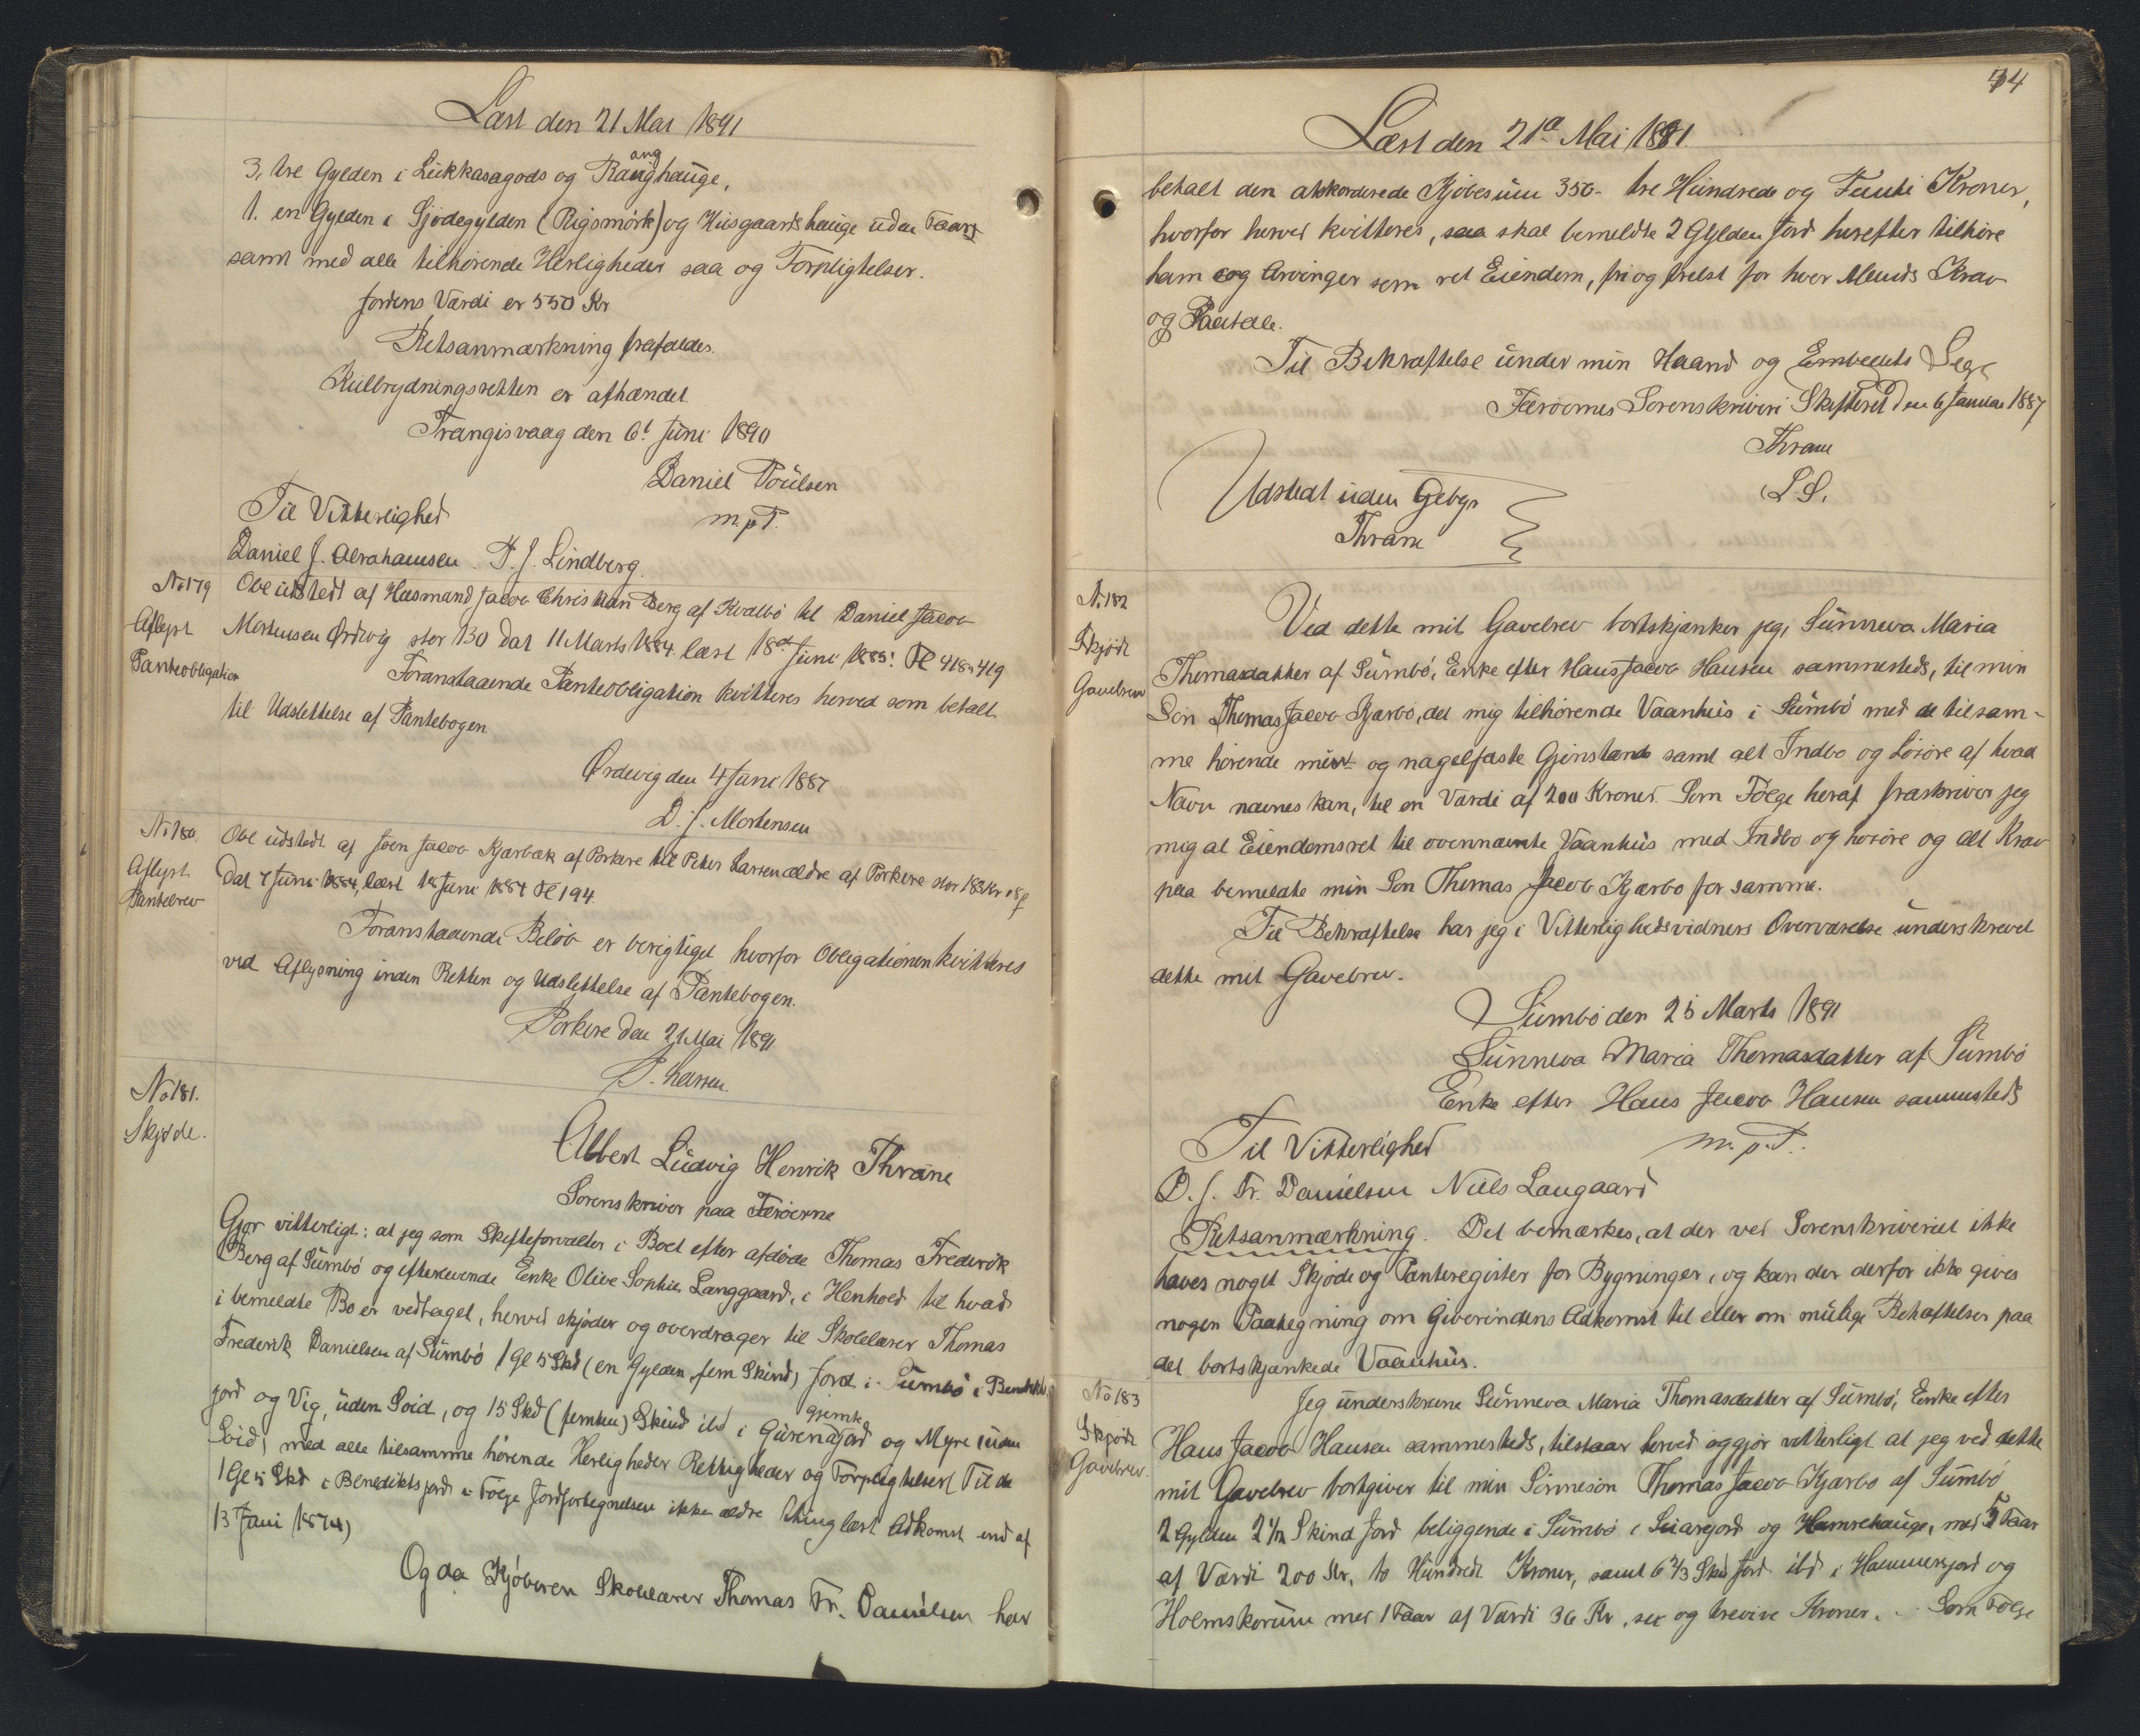 Læst den 21 Mai 1891
3, tre Gylden i Lükkasagods og Rang ang haüge,
1. en Gylden i Sjødegylden (Rigsmørk) og Hüsgaardshaüge üden Faar
samt med alle tilhørende Herligheder saa og Forpligtelser.
Jordens Værdi er 550 Kr
Retsanmærkning frafaldes.
Külbrydningsretten er afhændet.
Trangisvaag den 6t Juni 1890
Daniel Poülsen
m.p.P.
Til Vitterlighed
Daniel J. Abrahamsen. P. J. Lindberg.
No 179
Aflyst
Panteobligation
Obl üdstedt af Husmand Jacob Christian Berg af Kvalbø til Daniel Jacob
Mortensen Ørdevig stor 130 dat 11 Marts 1884. læst 18de Juni 1885. Fol 418 & 419
Foranstaaende Panteobligation kvitteres herved som betalt
til Udslettelse af Pantebogen
Ørdevig den 4 Juni 1887
D. J. Mortensen
No 180.
Aflyst.
Pantebrev
Obl üdstedt af Joen Jacob Kjærbæk af Porkere til Peter Larsen ældre af Porkere stor 183 Kr 18 ø
Dat 7 Juni 1884, læst 18 Juni 1884 Fol 194.
Foranstaaende Beløb er berigtiget hvorfor Obligationen kvitteres
ved Aflysning inden Retten og Udslettelse af Pantebogen.
Porkere den 21 Mai 1891
P. Larsen.
No 181.
Skjøde.
Albert Lüdvig Henrik Thrane
Sorenskriver paa Færøerne
Gjør vitterligt: at jeg som Skifteforvalter i Boet efter afdøde Thomas Frederik
Berg af Sümbø og efterlevende Enke Olive Sophie Langgaard, i Henhold til hvad
i bemeldte Bo er vedtaget, herved skjøder og overdrager til Skolelærer Thomas
Frederik Danielsen af Sümbø 1 Gl 5 Skd (en Gylden, fem Skind) Jord i Sümbø i Benedikts
jord og Vig, üden Soid, og 15 Skd (femten) Skind ibd i Gürenajord Grimte og Myre (üden
Soid) med alle tilsamme hørende Herligheder Rettigheder og Forpligtelser (Til de
1 Gl 5 Skd i Benediktsjord i Følge Jordfortegnelsen ikke ældre thinglæst Adkomst end af
13 Juni 1874)
Og da Kjøberen Skolelærer Thomas Fr. Danielsen har
44
Læst den 21de Mai 1891.
betalt den akkorderede Kjøbesüm 350- tre Hündrede og Femti Kroner,
hvorfor herved kvitteres, saa skal bemeldte 2 Gylden Jord herefter tilhøre
ham og Arvinger som ret Eiendom, fri og frelst for hver Mands Krav
og Paatale.
Til Bekræftelse ünder min Haand og Embedets Segl
Færøernes Sorenskriveri Skifteret den 6 Januar 1887
Thrane
(L.S.
Udstedt üden Gebyr
Thrane
No 182
Skjøde
Gavebrev
Ved dette mit Gavebrev bortskjænker jeg, Sünneva Maria
Thomasdatter af Sümbø, Enke efter Hans Jacob Hansen sammesteds, til min
Søn Thomas Jacob Kjærbo, det mig tilhørende Vaanhüs i Sümbø med de tilsam-
me hørende mür og nagelfaste Gjenstande samt alt Indbo og Løsøre af hvad
Navn nævnes kan, til en Værdi af 200 Kroner. Som Følge heraf fraskriver jeg
mig al Eiendomsret til ovennævnte Vaanhüs med Indbo og Løsøre og alt Krav
paa bemeldte min Søn Thomas Jacob Kjærbo for samme.
Til Bekræftelse har jeg i Vitterlighedsvidners Overværelse ünderskrevet
dette mit Gavebrev.
Sümbø den 25 Marts 1891
Sünneva Maria Thomasdatter af Sümbø
Enke efter Hans Jacob Hansen sammesteds
m.p.P.
Til Vitterlighed
D. J. Fr. Danielsen Niels Langaard
Retsanmærkning. Det bemærkes, at der ved Sorenskriveriet ikke
haves noget Skjøde og Panteregister for Bygninger, og kan der derfor ikke gives
nogen Paategning om Giverindens Adkomst til eller om mülige Behæftelser paa
det bortskjænkede Vaanhüs.
No 183
Skjøde
Gavebrev.
Jeg ünderskrevne Sünneva Maria Thomasdatter af Sümbø, Enke efter
Hans Jacob Hansen sammesteds, tilstaar herved og gjør vitterligt at jeg ved dette
mit Gavebrev bortgiver til min Sønnesøn Thomas Jacob Kjærbo af Sümbø
2 Gylden 2 1/2 Skind Jord beliggende i Sümbø i Süarejord og Hamrehaüge, med 5 Faar
af Værdi 200 Kr, to Hündrede Kroner, samt 6 2/3 Skd Jord ibd i Hammersjord og
Holmskorüm med 1 Faar af Værdi 36 Kr, sex og tredive Kroner. - Som Følge